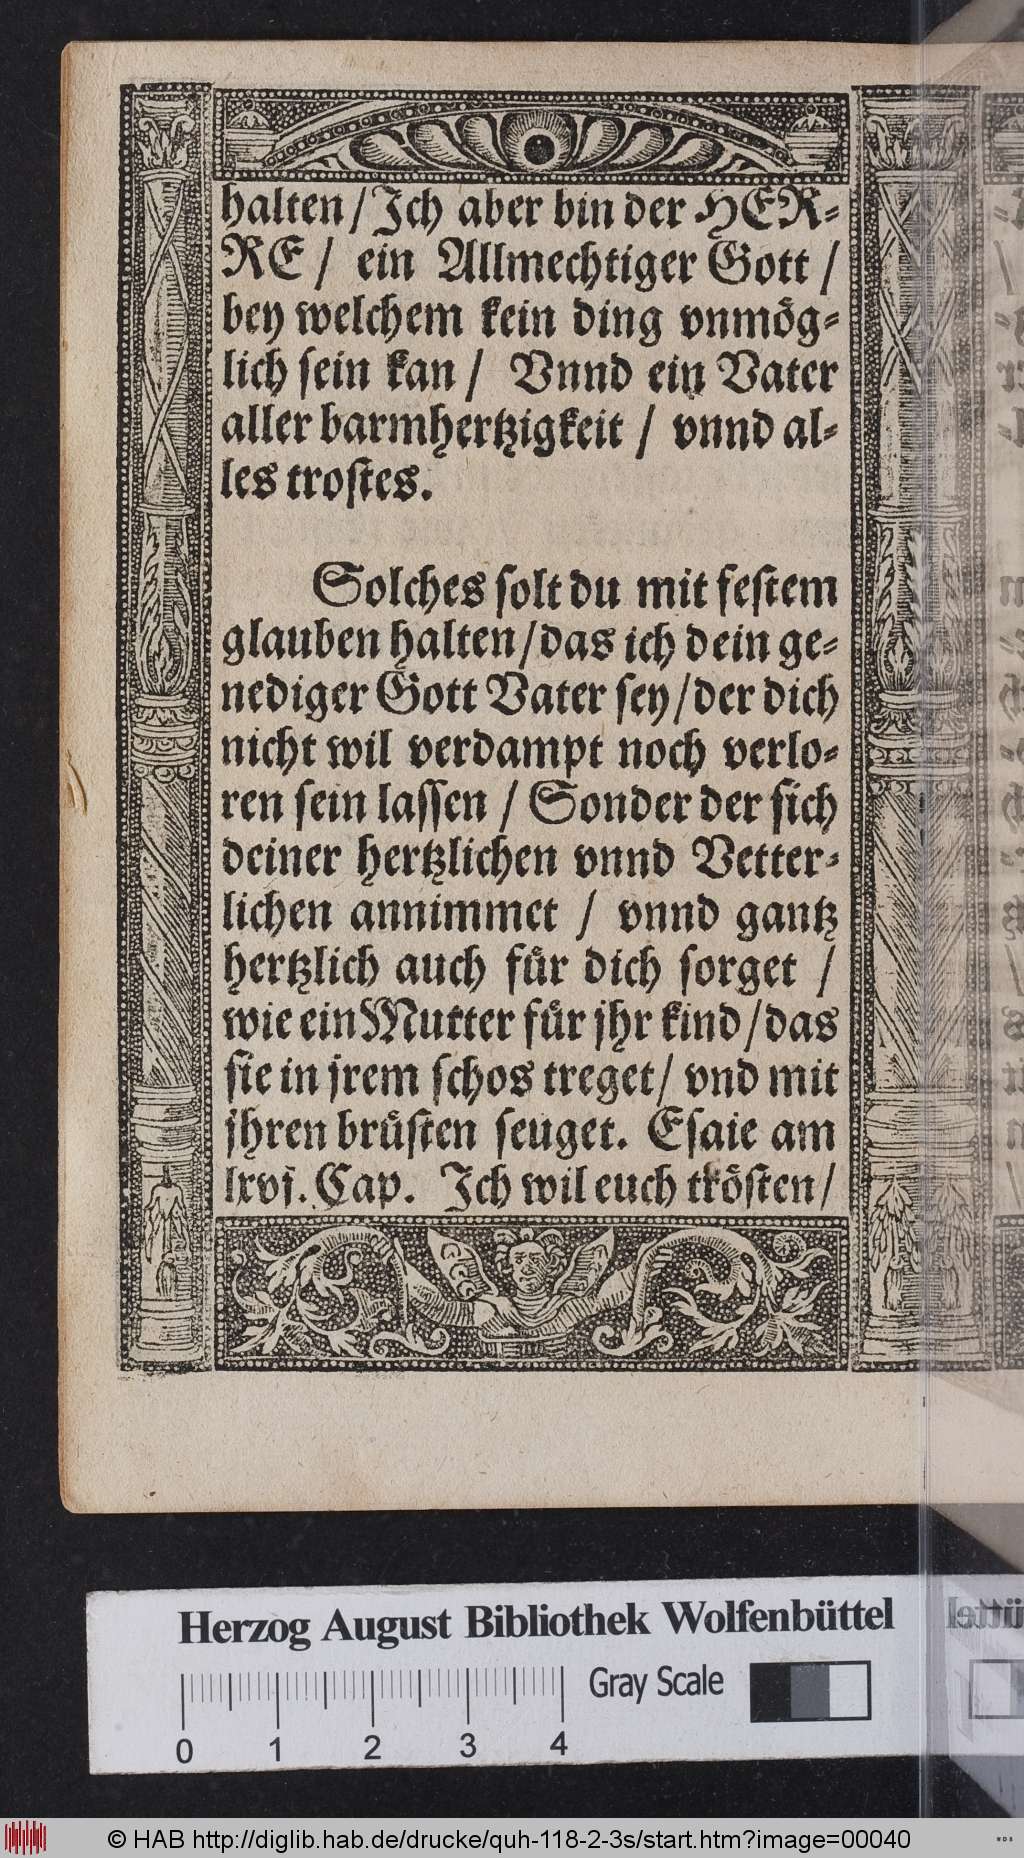 halten / Jch aber bin der HER-
RE / ein Allmechtiger Gott /
bey welchem kein ding vnmög-
lich sein kan / Vnnd ein Vater
aller barmhertzigkeit / vnnd al-
les trostes.
Solches solt du mit festem
glauben halten / das ich dein ge-
nediger Gott Vater sey / der dich
nicht wil verdampt noch verlo-
ren sein lassen / Sonder der sich
deiner hertzlichen vnnd Vetter-
lichen annimmet / vnnd gantz
hertzlich auch für dich sorget /
wie ein Mutter für jhr kind / das
sie in jrem schos treget / vnd mit
jhren brüsten seuget. Esaie am
lxvj. Cap. Jch wil euch trösten /
Herzog August Bibliothek Wolfenbüttel
Gray Scale
0 1 2 3 4
© HAB http://diglib.hab.de/drucke/quh-118-2-3s/start.htm?image=00040